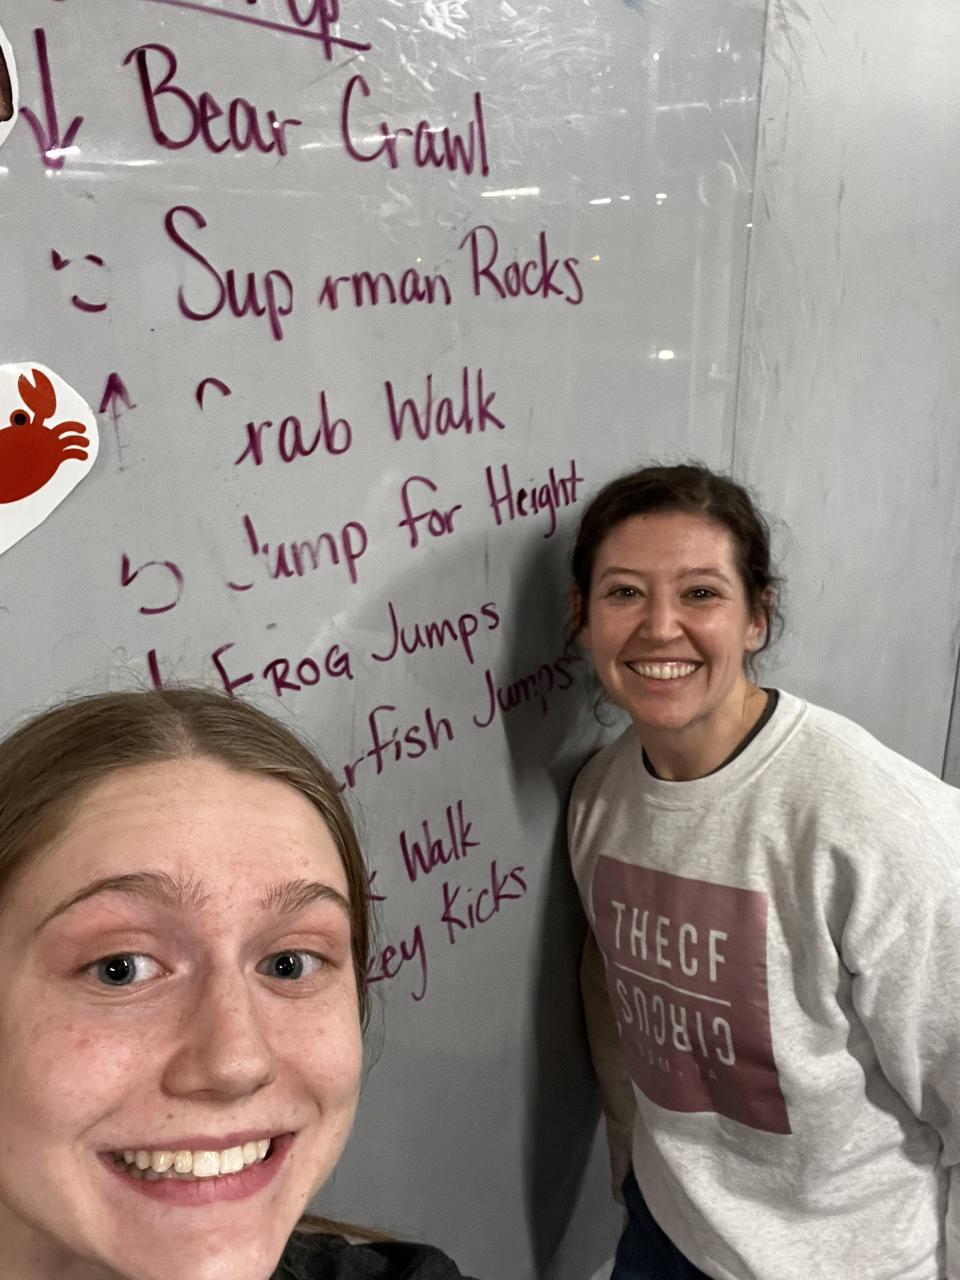 Up
Bear Crawl
Sup rman Rocks
rab Walk
Jump for Height
FROG Jumps
rfish Jumps
Walk
key Kicks
THECF
CIRCUS